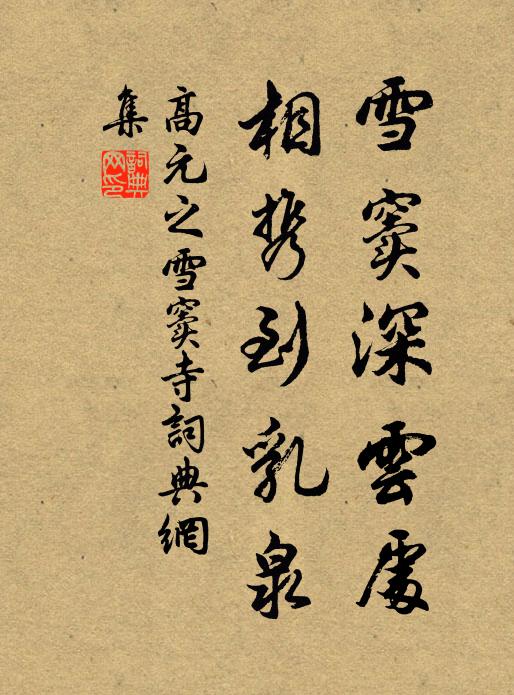 雪竇深雲處
相携到乳泉
高元之雪竇寺詞典網
集
詞典
网印